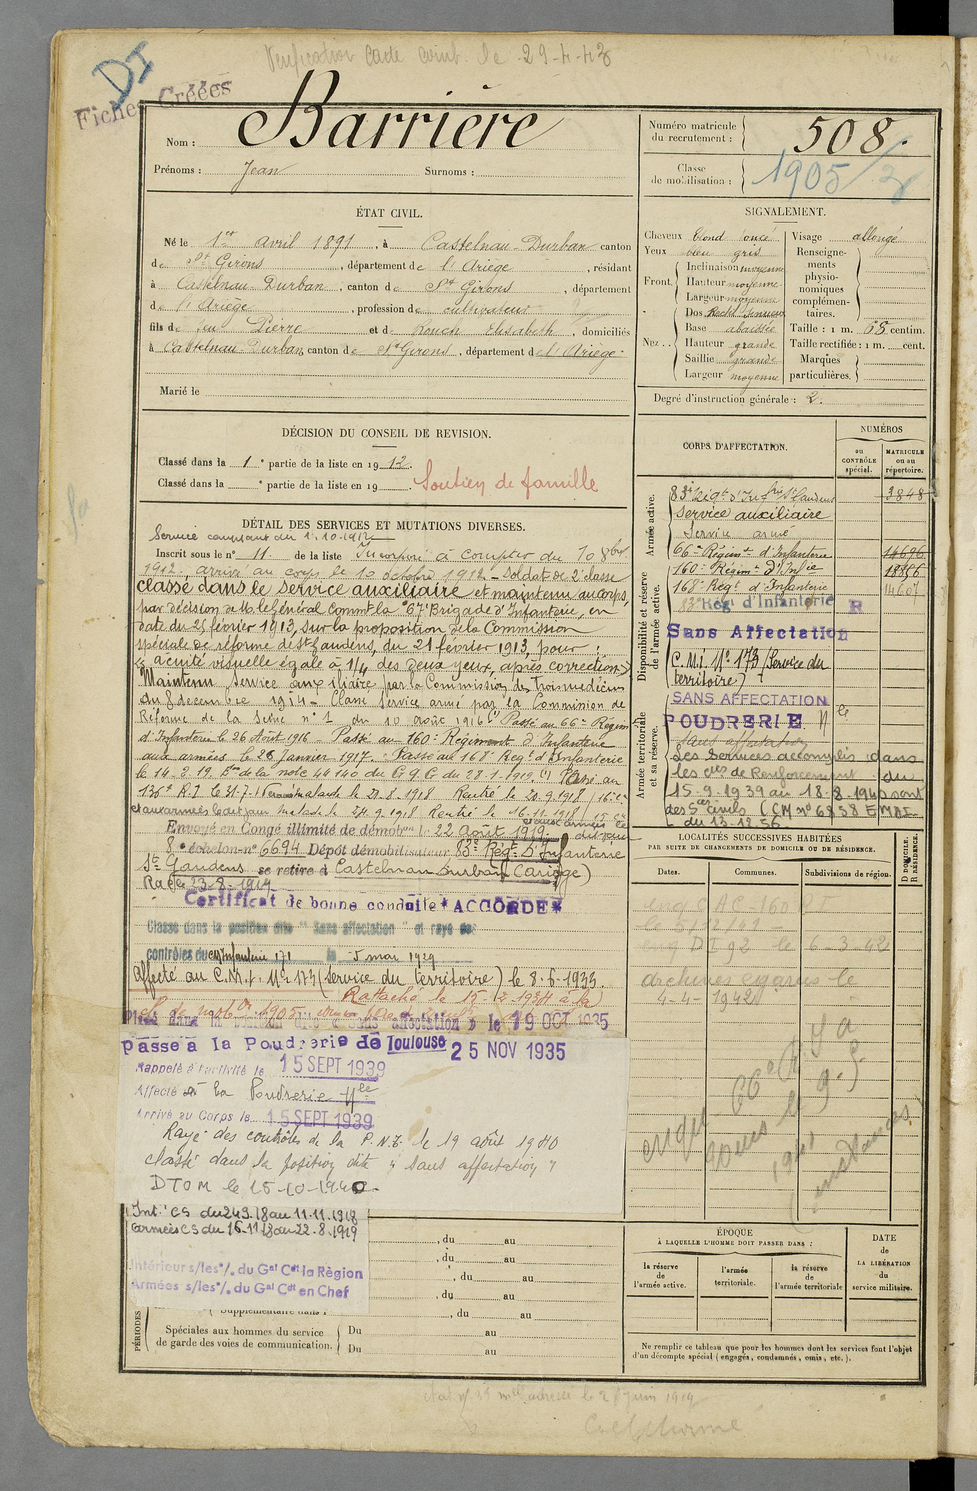 Vérification Carte comb. le 29-4-43
DI
Fiches Créées
Nom : Barrière
Prénoms : Jean Surnoms :
Numéro matricule du recrutement : 508.
Classe de mobilisation : 1905/2
ÉTAT CIVIL.
Né le 1er avril 1891, à Castelnau-Durban canton
de St Girons, département de l'Ariège, résidant
à Castelnau-Durban, canton de St Girons, département
de l'Ariège, profession de cultivateur
fils de feu Pierre et de Rouch Elisabeth, domiciliés
à Castelnau Durban, canton de St Girons, département de l'Ariège.
Marié le
SIGNALEMENT.
Cheveux blond foncé
Yeux bleu gris
Front. Inclinaison moyenne
Hauteur moyenne
Largeur moyenne
Nez.. Dos Rectil. Sinueux
Base abaissée
Hauteur grande
Saillie grande
Largeur moyenne
Visage allongé
Renseignements physionomiques complémentaires.
Taille : 1 m. 65 centim.
Taille rectifiée : 1 m. cent.
Marques particulières.
Degré d'instruction générale : 2.
DÉCISION DU CONSEIL DE REVISION.
Classé dans la 1e partie de la liste en 1912.
Classé dans la e partie de la liste en 19 Soutien de famille
DÉTAIL DES SERVICES ET MUTATIONS DIVERSES.
Service comptant du 1.10.1912
Inscrit sous le n° 11 de la liste Incorporé à compter du 10 8bre
1912, arrivé au corps le 10 octobre 1912 - Soldat de 2e classe
classé dans le service auxiliaire et maintenu au corps,
par décision de M. le Général Commt la 67e Brigade d'Infanterie, en
date du 25 février 1913, sur la proposition de la Commission
spéciale de réforme de St Gaudens, du 21 février 1913, pour :
« acuité visuelle égale à 1/4 des deux yeux, après correction »
Maintenu service auxiliaire par la Commission des trois médecins
du 8 décembre 1914 - Classé service armé par la Commission de
Réforme de la Seine n° 1 du 10 août 1916 Passé au 66e Régim
d'Infanterie le 26 Août 1916 - Passé au 160e Régiment d'Infanterie
aux armées le 26 janvier 1917. Passé au 168e Régt d'Infanterie
le 14.3.19. de la note 44140 du G.Q.G du 28.1.1919. (1) Passé au
136e R.I. le 31.7.18 malade le 21.8.1918 Rentré le 20.9.1918
malade le 24.9.1918 Rentré le 16-11-1918
Envoyé en Congé illimité de démobon le 22 Août 1919
8e échelon n° 6694 Dépôt démobilisateur 83e Régt D'Infanterie
St Gaudens se retire à Castelnau Durban (Ariège)
Rayé le 23-8-1919
Certificat de bonne conduite "ACCORDÉ"
Classé dans la position dite " Sans affectation " et rayé des
contrôles du ct Infanterie 171 le 5 mai 1929
Affecté au C.M.I. N° 173 (Service du territoire) le 8-6-1933.
Rattaché le 15-2-1934 à la
cl. de mobon 1905
Placé dans la position dite « sans affectation » le 19 OCT 1935
Passé à la Poudrerie de Toulouse 25 NOV 1935
Rappelé à l'activité le 15 SEPT 1939
Affecté à la Poudrerie Nle
Arrivé au Corps le 15 SEPT 1939
Rayé des contrôles de la P.N.T. le 19 août 1940
classé dans la position dite " sans affectation "
DTOM le 15-10-1940
Int. CS du 24.9.18 au 11.11.1918
armées CS du 16-11-18 au 22-8-1919
Intérieur s/les °/. du Gal Cdt la Région
Armées s/les °/. du Gal Cdt en Chef
PÉRIODES
Supplémentaire dans l'
, du au
, du au
, du au
, du au
Spéciales aux hommes du service de garde des voies de communication.
Du au
Du au
CORPS D'AFFECTATION.
NUMÉROS
au CONTRÔLE spécial.
MATRICULE ou au répertoire.
Armée active.
83e Régt d'Infrie St Gaudens 3848
Service auxiliaire
Service armé
66e Régimt d'Infanterie 14696
Disponibilité et réserve de l'armée active.
160e Régimt d'Infie 18856
168e Régt d'Infanterie 14607
83e Rég. d'Infanterie R
Sans Affectation
C.M.I. N° 173 (Service du
territoire)
Armée territoriale et sa réserve.
SANS AFFECTATION
POUDRERIE Nle
Sans affectation
Les Services accomplis dans
les Cies de Renforcement du
15-9-1939 au 18-8-1940 sont
des Sces civils (CM n° 6858 EMDI
du 13-12-56
LOCALITÉS SUCCESSIVES HABITÉES
PAR SUITE DE CHANGEMENTS DE DOMICILE OU DE RÉSIDENCE.
Dates. Communes. Subdivisions de région. D DOMICILE. R RÉSIDENCE.
le 6-3-42
archives
4-4-1942
ÉPOQUE
À LAQUELLE L'HOMME DOIT PASSER DANS :
la réserve de l'armée active.
l'armée territoriale.
la réserve de l'armée territoriale
DATE de LA LIBÉRATION du service militaire.
Ne remplir ce tableau que pour les hommes dont les services font l'objet
d'un décompte spécial (engagés, condamnés, omis, etc.).